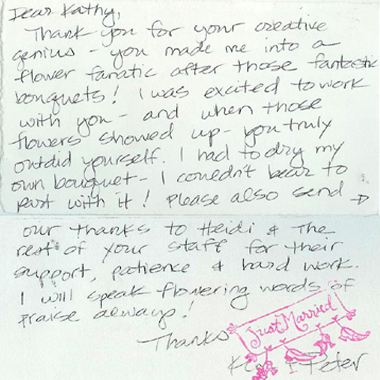 Dear Kathy,
Thank you for your creative
genius - you made me into a
flower fanatic after those fantastic
bouquets! I was excited to work
with you - and when those
flowers showed up - you truly
outdid yourself. I had to dry my
own bouquet - I couldn't bear to
part with it! Please also send →
our thanks to Heidi & the
rest of your staff for their
support, patience & hard work.
I will speak flowering words of
praise always!
Thanks
Just Married
Peter